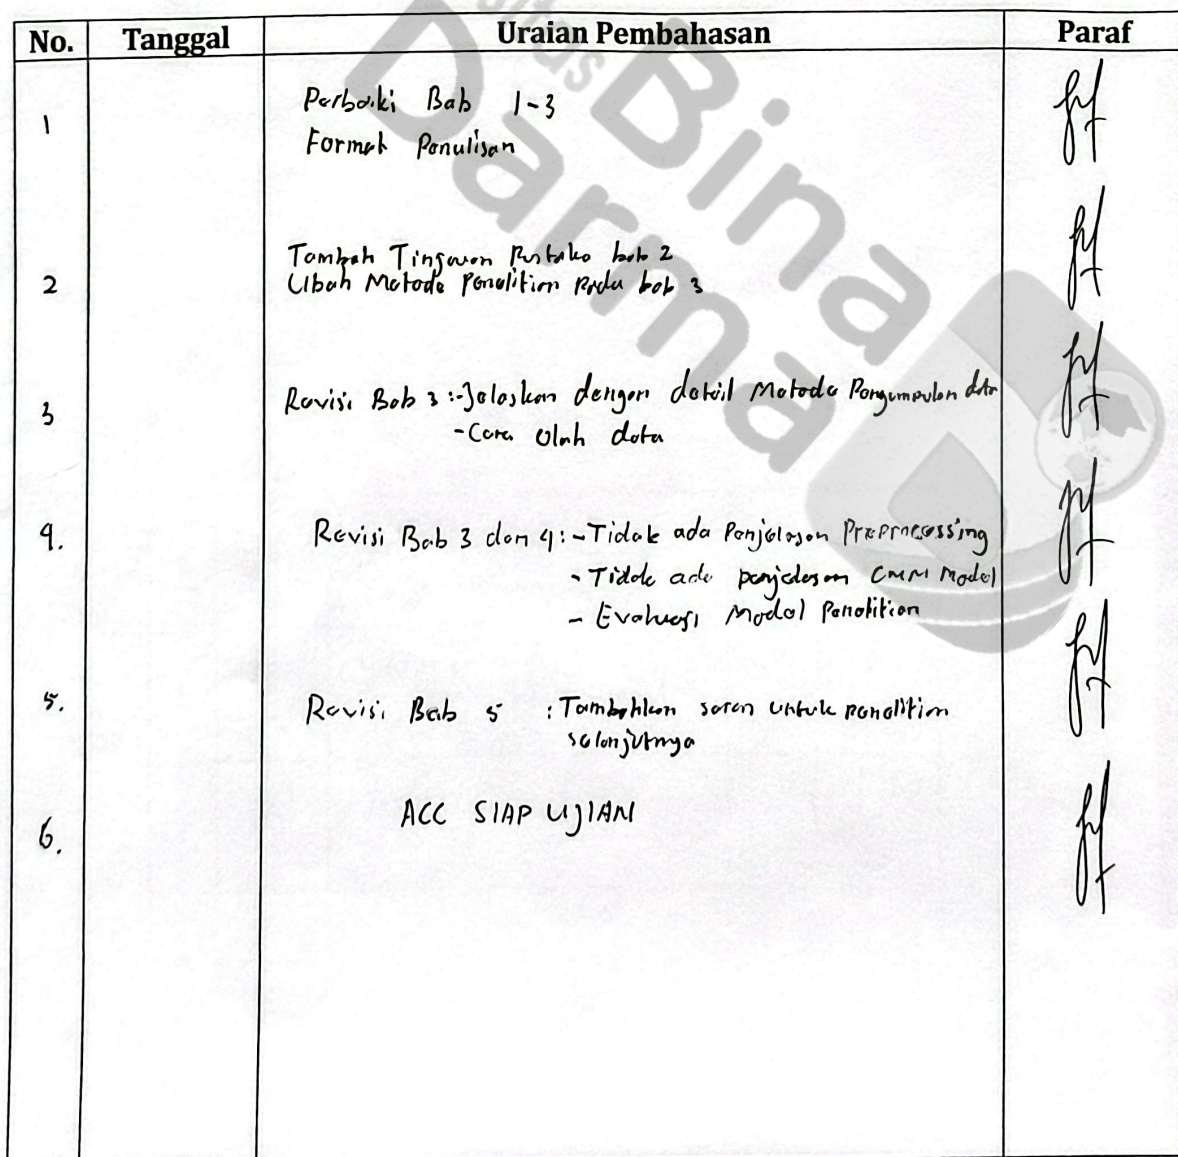 No. Tanggal Uraian Pembahasan Paraf
1 Perbaiki Bab 1-3
Format Penulisan
2 Tambah Tinjauan Pustaka bab 2
Ubah Metode Penelitian Pada bab 3
3 Revisi Bab 3 :-Jelaskan dengan detail Metode Pengumpulan data
-Cara Olah data
4. Revisi Bab 3 dan 4 : -Tidak ada Penjelasan Preprocessing
- Tidak ada penjelasan CNN Model
- Evaluasi Model Penelitian
5. Revisi Bab 5 : Tambahkan saran untuk penelitian
selanjutnya
6. ACC SIAP UJIAN
Bina
Darma